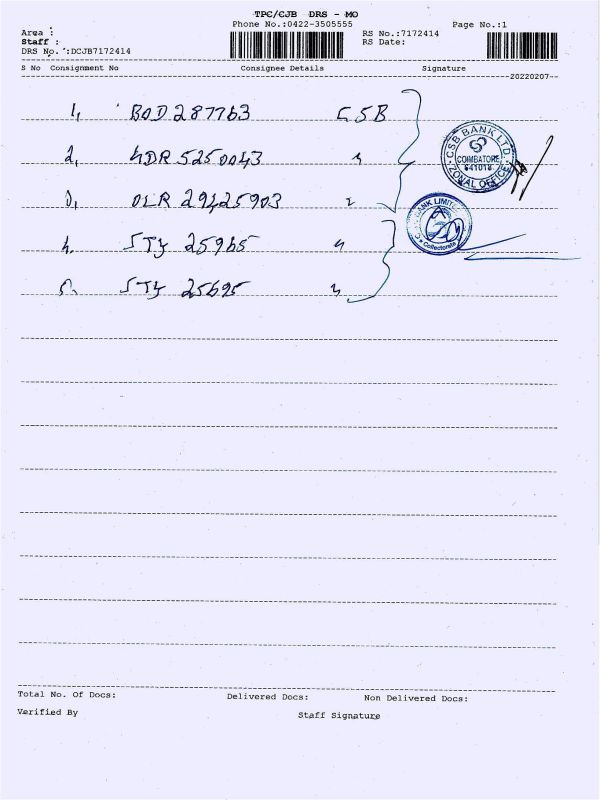 TPC/CJB DRS - MO
Phone No.:0422-3505555
Page No.:1
Area :
Staff :
DRS No. :DCJB7172414
RS No.:7172414
RS Date:
S No Consignment No Consignee Details Signature
--20220207--
1, BOD 287763 CSB
2, 5250043 "
3, OLR 29425903 "
4. STY 25965 "
5. STY 25695 "
CSB BANK LTD.
COIMBATORE
641018
ZONAL OFFICE
BANK LIMITED
Collectorate
Total No. Of Docs: Delivered Docs: Non Delivered Docs:
Verified By Staff Signature